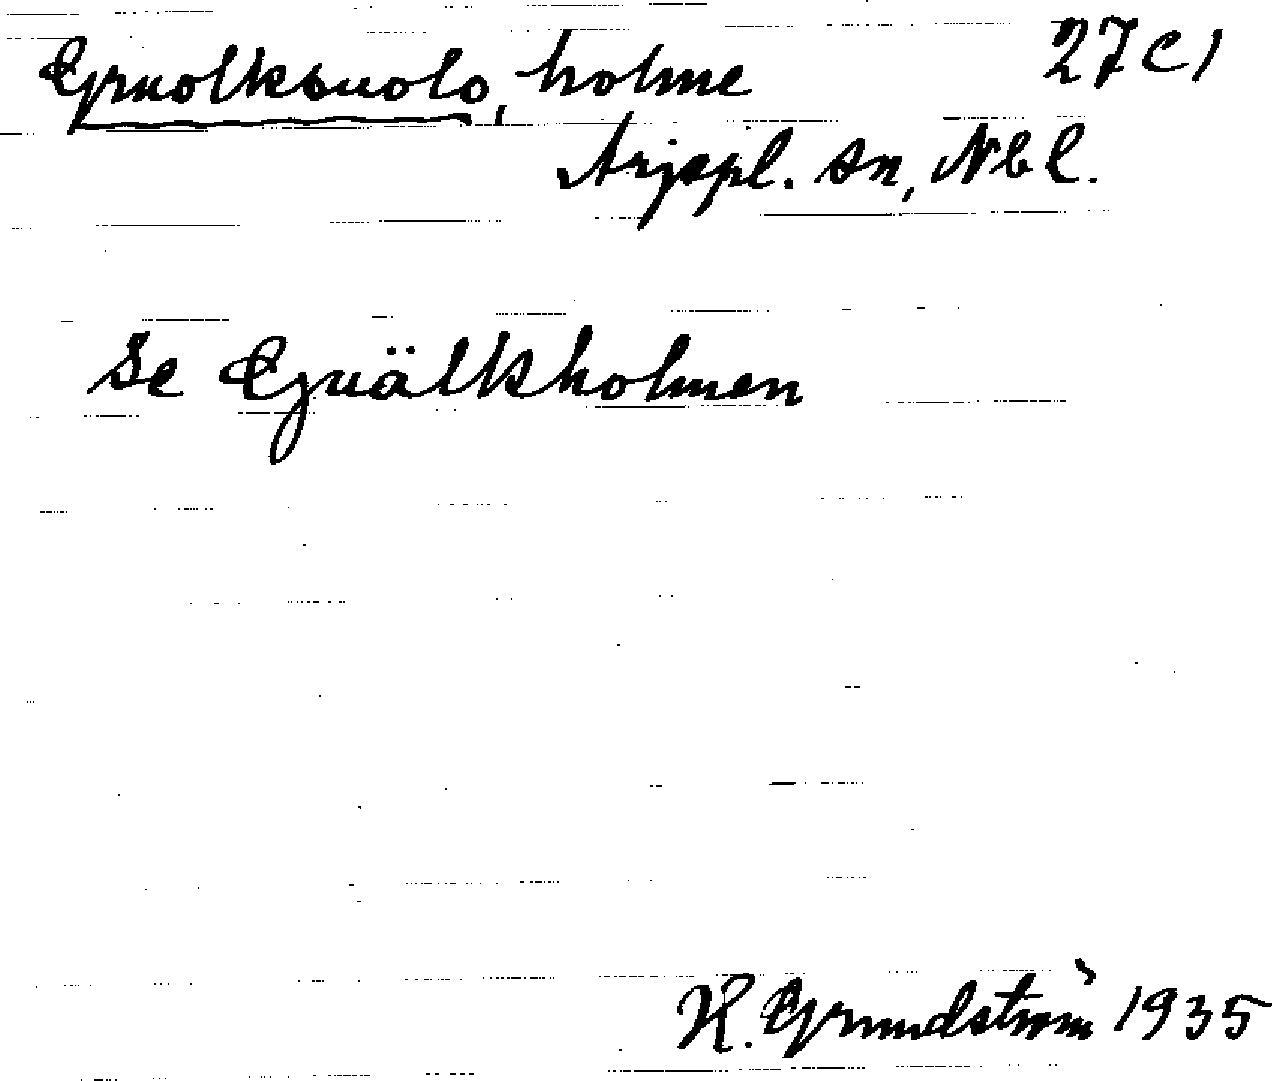 Guolksuolo, holme 27 C 1
Arjepl. sn, Nbl.
Se Guälkholmen
H. Grundström 1935